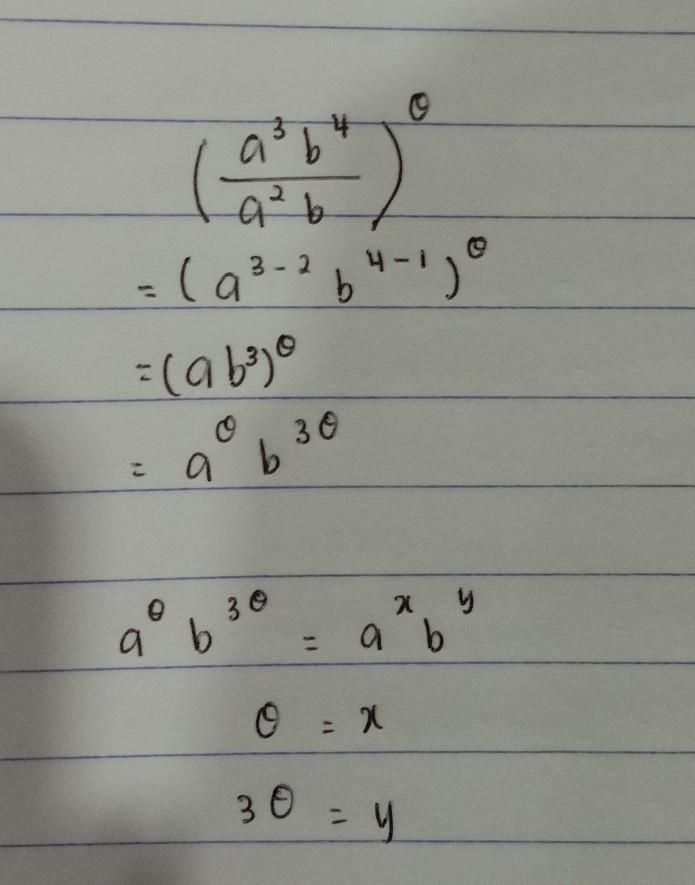 (a³b⁴ / a²b)^θ
= (a^(3-2) b^(4-1))^θ
= (ab³)^θ
= a^θ b^(3θ)
a^θ b^(3θ) = a^x b^y
θ = x
3θ = y